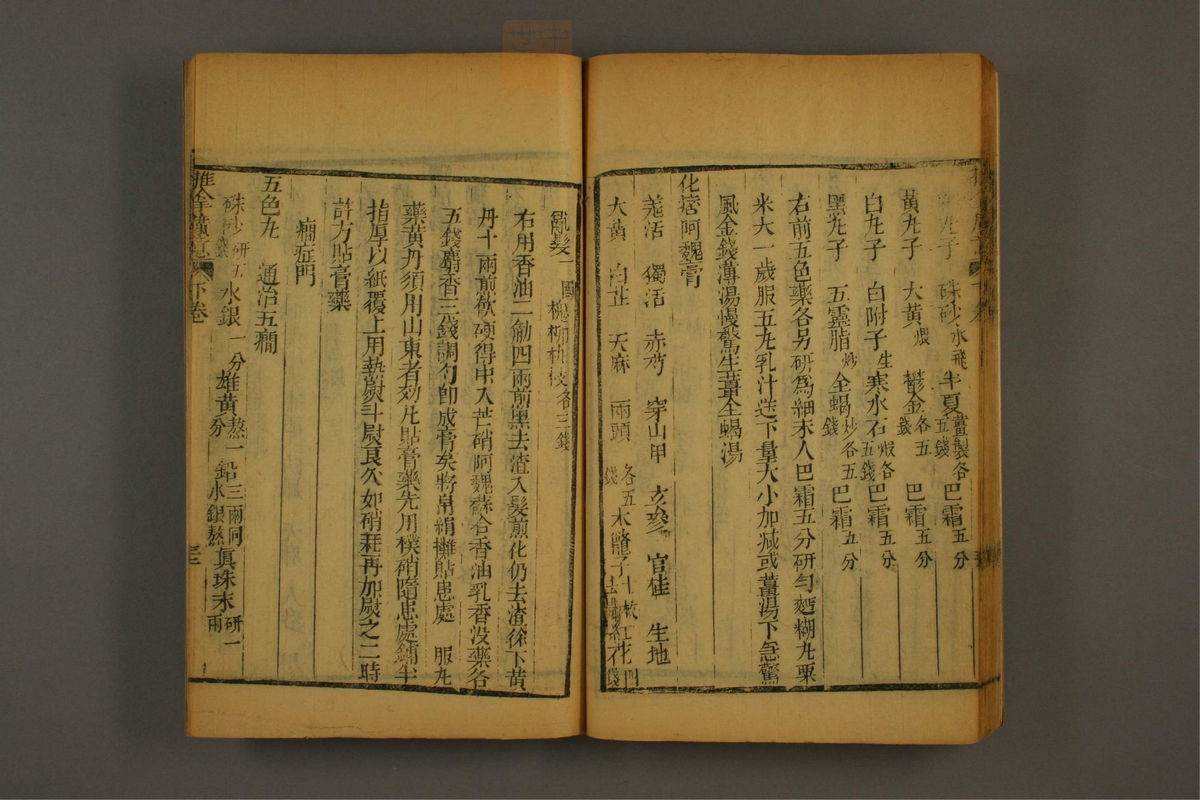 丸子 硃砂水飛 半夏薑製各五錢 巴霜五分
黃丸子 大黃煨 鬱金各五錢 巴霜五分
白丸子 白附子生 寒水石煅各五錢 巴霜五分
黑丸子 五靈脂炒 全蝎炒各五錢 巴霜五分
右前五色藥各另研爲細末入巴霜五分研勻麪糊丸粟
米大一歲服五丸乳汁送下量大小加減或薑湯下急驚
風金錢薄湯慢驚生薑全蝎湯
化痞阿魏膏
羗活 獨活 赤芍 穿山甲 玄參 官桂 生地
大黃 白芷 天麻 兩頭 各五錢 木鱉子 紅花
亂髮一團 槐柳桃枝各三錢
右用香油二觔四兩煎黑去渣入髮煎化仍去渣徐下黃
丹十兩煎軟硬得中入芒硝阿魏蘇合香油乳香没藥各
五錢麝香三錢調勻卽成膏矣將帛絹攤貼患處 服丸
藥黃丹須用山東者効凡貼膏藥先用樸硝隨患處鋪半
指厚以紙覆上用熱熨斗熨良久如硝耗再加熨之二時
許方貼膏藥
癇症門
五色丸 通治五癇
硃砂研五錢 水銀一分 雄黃熬一分 鉛三兩同水銀熬 眞珠末研一兩
下卷